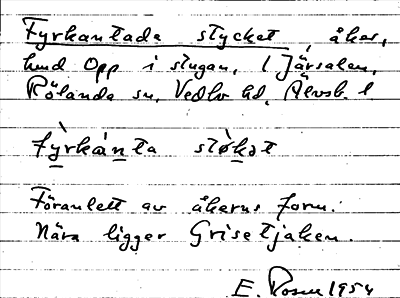 Fyrkantade stycket, åker,
hmd Opp i stugan, l Järsalen,
Rölanda sn, Vedbo hd, Älvsb. l
fỳrkàn̲ta stø̀k̲ət
Föranlett av åkerns form.
Nära ligger Grisetjaken.
E. Rosen 1954